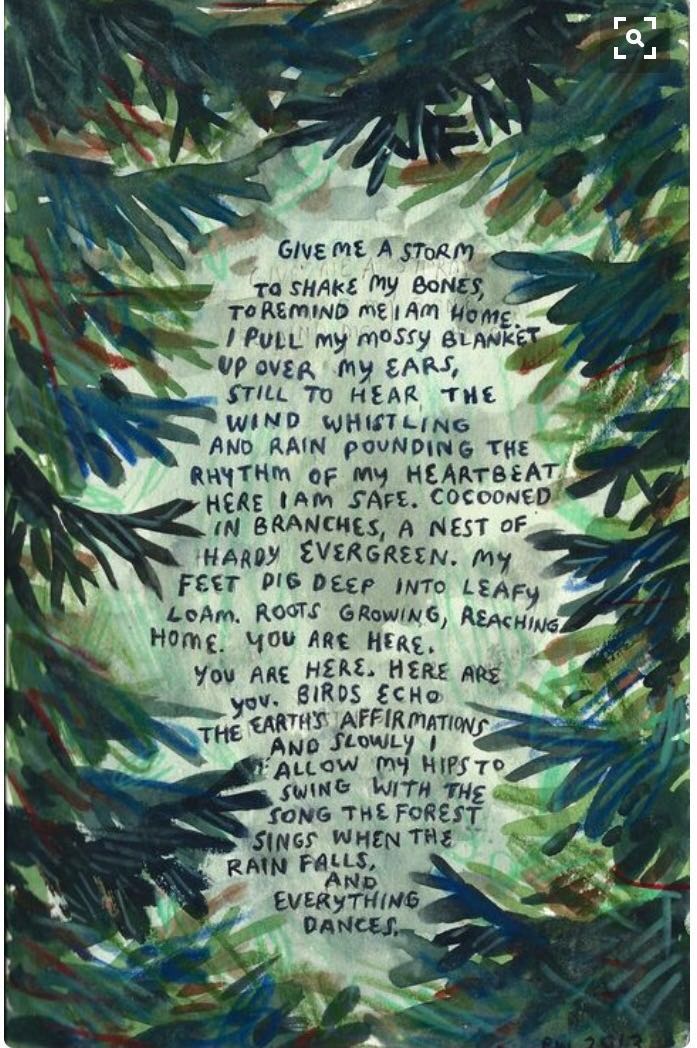 GIVE ME A STORM
TO SHAKE MY BONES,
TO REMIND ME I AM HOME.
I PULL MY MOSSY BLANKET
UP OVER MY EARS,
STILL TO HEAR THE
WIND WHISTLING
AND RAIN POUNDING THE
RHYTHM OF MY HEARTBEAT
HERE I AM SAFE. COCOONED
IN BRANCHES, A NEST OF
HARDY EVERGREEN. MY
FEET DIG DEEP INTO LEAFY
LOAM. ROOTS GROWING, REACHING
HOME. YOU ARE HERE.
YOU ARE HERE. HERE ARE
YOU. BIRDS ECHO
THE EARTH'S AFFIRMATIONS
AND SLOWLY I
ALLOW MY HIPS TO
SWING WITH THE
SONG THE FOREST
SINGS WHEN THE
RAIN FALLS,
AND
EVERYTHING
DANCES.
2013